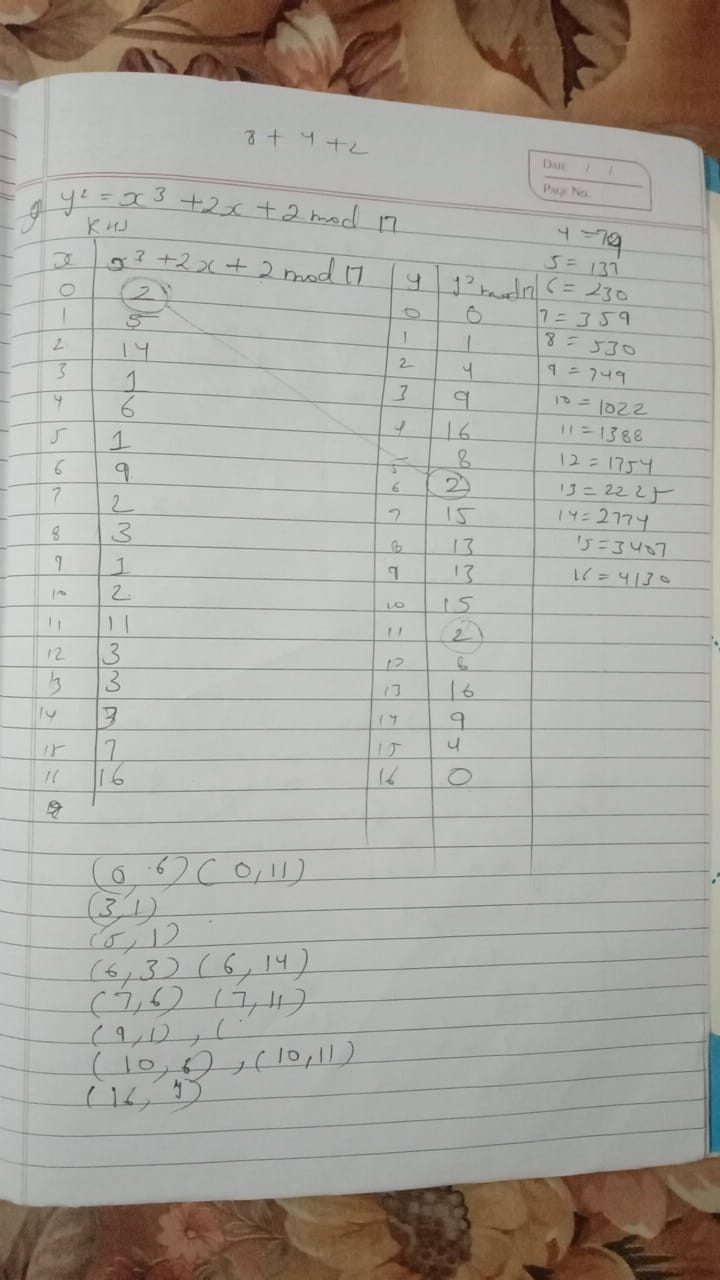 8 + 4 + 2
Date / /
Page No.
y² = x³ + 2x + 2 mod 17
RHS
x x³ + 2x + 2 mod 17 y y² mod 17
0 2
1 5 0 0
2 14 1 1
3 1 2 4
4 6 3 9
5 1 4 16
6 9 5 8
7 2 6 2
8 3 7 15
9 1 8 13
10 2 9 13
11 11 10 15
12 3 11 2
13 3 12 8
14 3 13 16
15 7 14 9
16 16 15 4
16 0
4 = 79
5 = 137
6 = 230
7 = 359
8 = 530
9 = 749
10 = 1022
11 = 1388
12 = 1754
13 = 2225
14 = 2774
15 = 3407
16 = 4130
(0, 6) (0, 11)
(3, 1)
(5, 1)
(6, 3) (6, 14)
(7, 6) (7, 11)
(9, 1) , (
(10, 6) , (10, 11)
(16, 4)